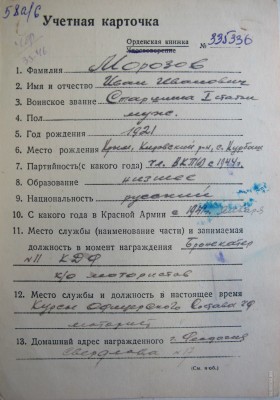 58а/6
Учетная карточка
Орденская книжка
Удостоверение № 335336
1. Фамилия Морозов
2. Имя и отчество Иван Иванович
3. Воинское звание Старшина I статьи
4. Пол муж.
5. Год рождения 1921
6. Место рождения Крым, Кировский р-н, с. Курбаш
7. Партийность (с какого года) чл. ВКП(б) с 1944 г.
8. Образование низшее
9. Национальность русский
10. С какого года в Красной Армии с
11. Место службы (наименование части) и занимаемая
должность в момент награждения Бронекатер
№11 КДФ
к/о мотористов
12. Место службы и должность в настоящее время
Курсы Офицерского Состава ЧФ
моторист
13. Домашний адрес награжденного г. Феодосия
Свердлова
(См. н об.)